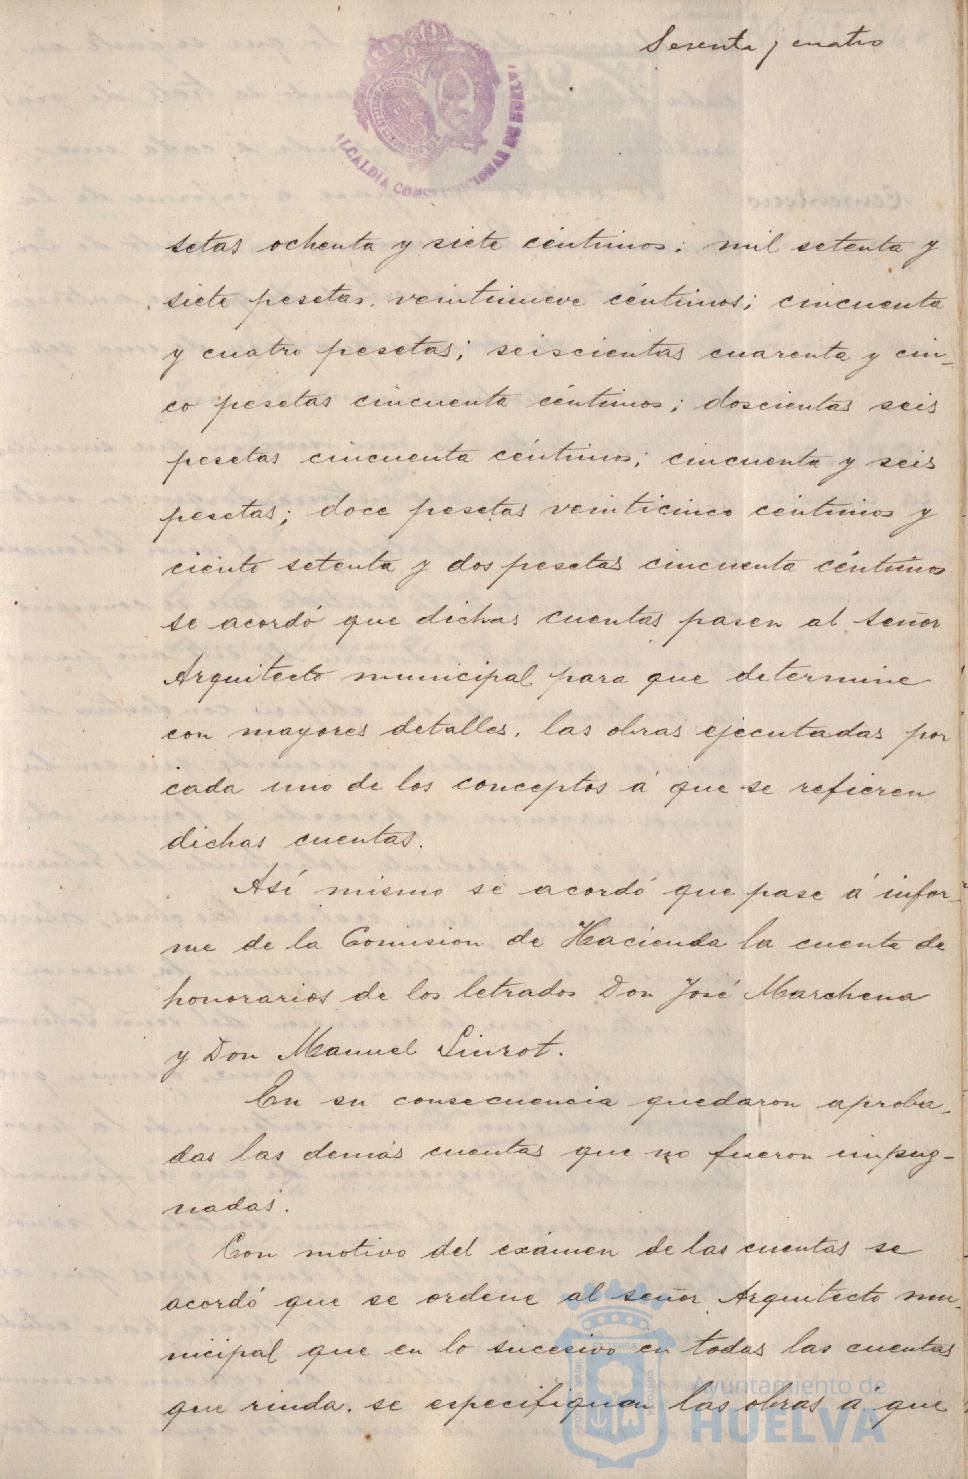 Sesenta y cuatro
ALCALDIA CONSTITUCIONAL DE HUELVA
setas ochenta y siete céntimos; mil setenta y
siete pesetas veintinueve céntimos; cincuenta
y cuatro pesetas; seiscientas cuarenta y cin-
co pesetas cincuenta céntimos; doscientas seis
pesetas cincuenta céntimos; cincuenta y seis
pesetas; doce pesetas veinticinco céntimos y
ciento setenta y dos pesetas cincuenta céntimos
se acordó que dichas cuentas pasen al señor
Arquitecto municipal para que determine
con mayores detalles, las obras ejecutadas por
cada uno de los conceptos á que se refieren
dichas cuentas.
Así mismo se acordó que pase á infor-
me de la Comision de Hacienda la cuenta de
honorarios de los letrados Don José Marchena
y Don Manuel Siurot.
En su consecuencia quedaron aproba-
das las demás cuentas que no fueron impug-
nadas.
Con motivo del exámen de las cuentas se
acordó que se ordene al señor Arquitecto mu-
nicipal que en lo sucesivo en todas las cuentas
que rinda, se especifiquen las obras á que
Ayuntamiento de
HUELVA